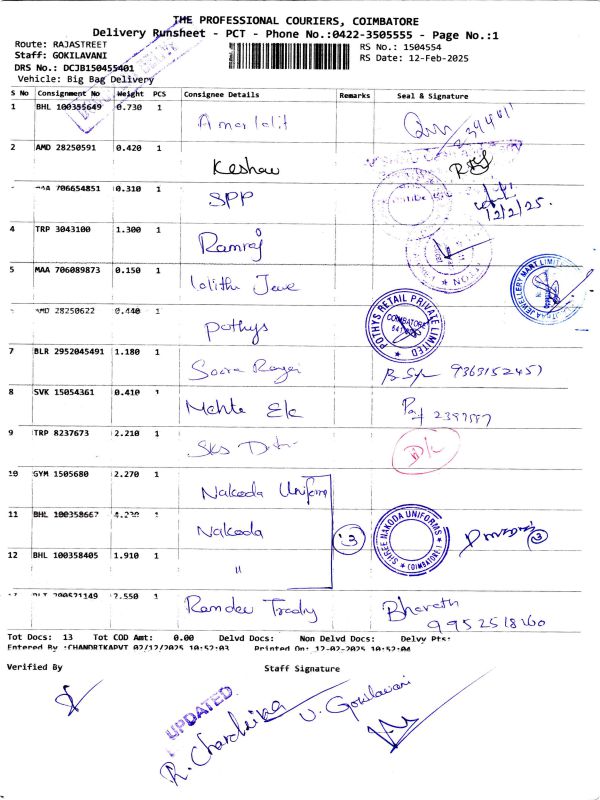 THE PROFESSIONAL COURIERS, COIMBATORE
Delivery Runsheet - PCT - Phone No.:0422-3505555 - Page No.:1
Route: RAJASTREET
RS No.: 1504554
Staff: GOKILAVANI
RS Date: 12-Feb-2025
DRS No.: DCJB150455401
Vehicle: Big Bag Delivery
S No Consignment No Weight PCS Consignee Details Remarks Seal & Signature
1 BHL 100355649 0.730 1 Amar lalit
2 AMD 28250591 0.420 1 Keshav
MAA 706654851 0.310 1 SPP 12/2/25.
4 TRP 3043100 1.300 1 Ramraj
5 MAA 706089873 0.150 1 lalitha
AMD 28250622 0.440 1 Pothys
POTHYS RETAIL PRIVATE LIMITED
COIMBATORE
7 BLR 2952045491 1.180 1 9363152457
8 SVK 15054361 0.410 1 Mehta Ele
9 TRP 8237673 2.210 1 SKS
10 GYM 1505680 2.270 1 Nakoda Uniform
11 BHL 100358667 4.230 1 Nakoda 3
SHREE NAKODA UNIFORMS
(COIMBATORE)
3
12 BHL 100358405 1.910 1 "
200571149 7.550 1 Ramdev Trading Bharath
9952518260
Tot Docs: 13 Tot COD Amt: 0.00 Delvd Docs: Non Delvd Docs: Delvy Pts:
Entered By :CHANDRIKAPVT 02/12/2025 10:52:03 Printed On: 12-02-2025 10:52:04
Verified By Staff Signature
UPDATED
R. Chandrika
V. Gokilavani